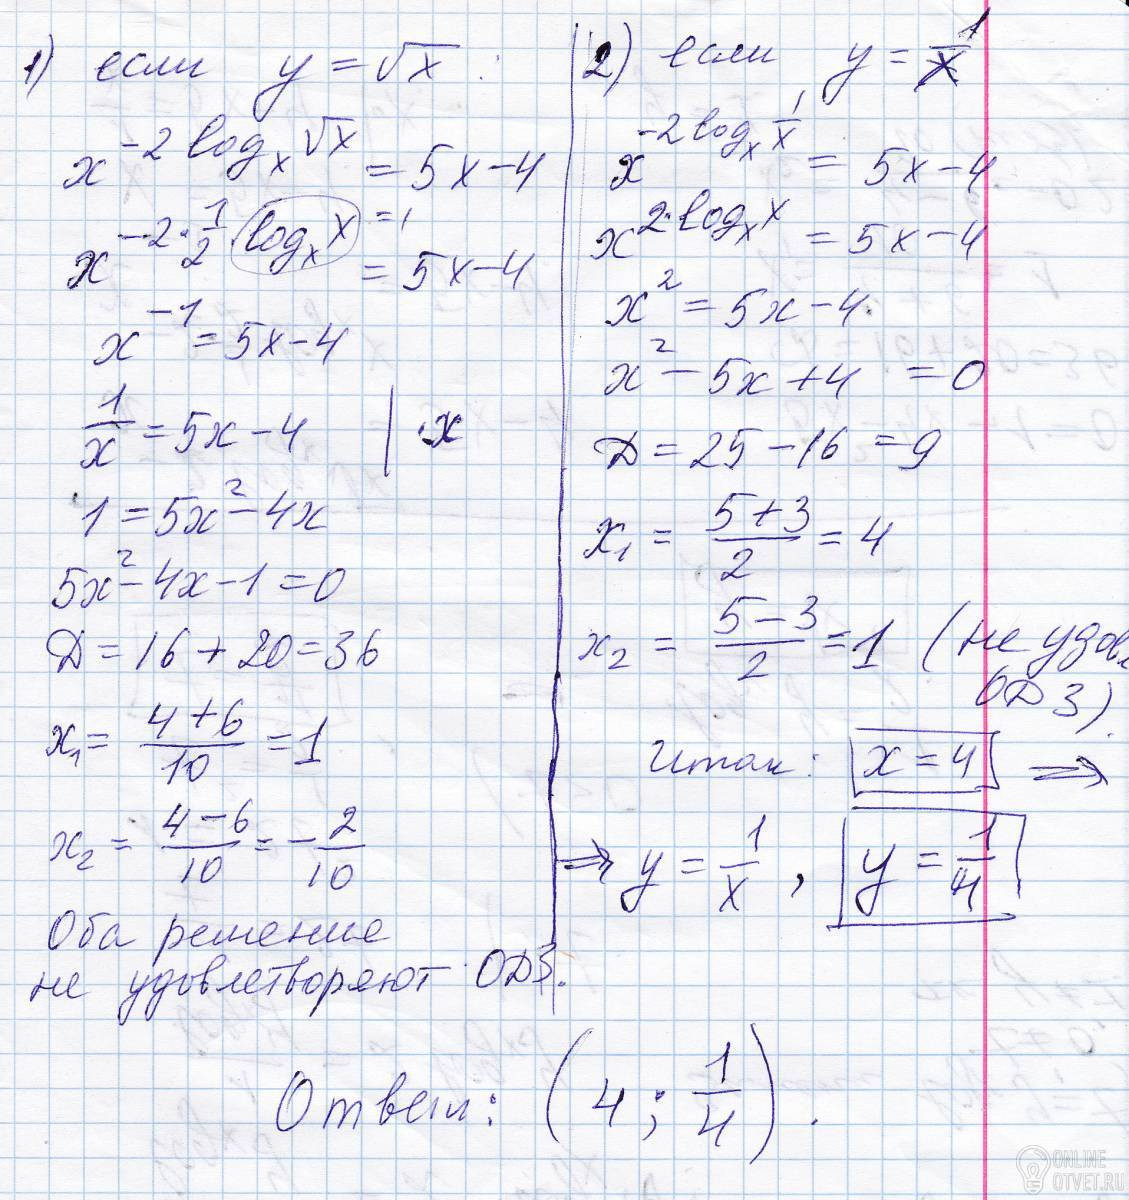 1) если y = √x :
x^(-2 log_x √x) = 5x-4
x^(-2·1/2 log_x x) = 5x-4 =1
x^(-1) = 5x-4
1/x = 5x-4 | ·x
1 = 5x²-4x
5x²-4x-1=0
D = 16+20=36
x₁ = (4+6)/10 = 1
x₂ = (4-6)/10 = -2/10
Оба решение
не удовлетворяют ОДЗ.
2) если y = 1/x
x^(-2 log_x 1/x) = 5x-4
x^(2·log_x x) = 5x-4
x² = 5x-4
x²-5x+4 = 0
D = 25-16 = 9
x₁ = (5+3)/2 = 4
x₂ = (5-3)/2 = 1 (не удовл
ОДЗ).
Итак: x = 4 ⇒
⇒ y = 1/x , y = 1/4
Ответ: (4 ; 1/4).
ONLINE
OTVET.RU